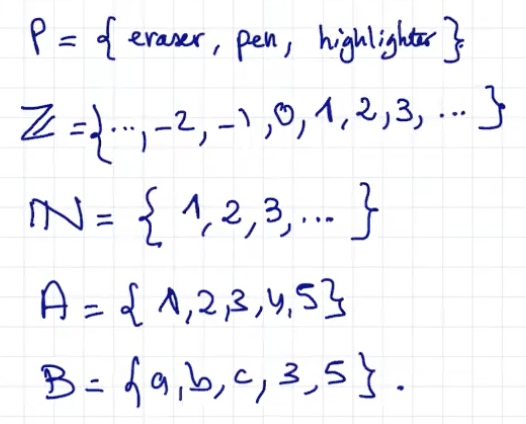 P = { eraser, pen, highlighter }.
ℤ = {..., -2, -1, 0, 1, 2, 3, ... }
ℕ = { 1, 2, 3, ... }
A = { 1, 2, 3, 4, 5 }
B = { a, b, c, 3, 5 } .